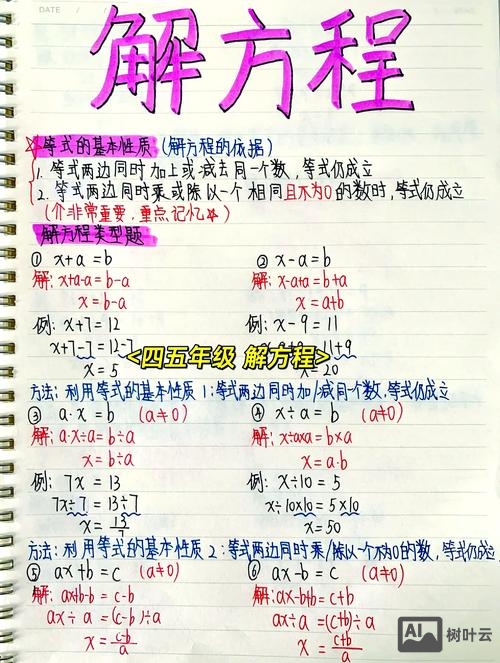 DATE / /
解方程
☆等式的基本性质(解方程的依据)
1. 等式两边同时加上或减去同一个数,等式仍成立
2. 等式两边同时乘或除以一个相同且不为0的数时,等式仍成立
(介非常重要,重点记忆☆)
解方程类型题
① x+a=b ② x-a=b
解: x+a-a=b-a 解: x-a+a=b+a
x=b-a x=a+b
例: x+7=12 例: x-9=11
x+7-7=12-7 11+9
<四五年级 解方程>
x=5 x=20
方法: 利用等式的基本性质1:等式两边同时加/减同一个数,等式仍成立
③ a·x=b (a≠0) ④ x÷a=b (a≠0)
解: a·x÷a=b÷a 解: x÷a×a=b×a
x=b÷a x=a·b
例: 7x=13 例: x÷10=5
7x÷7=13÷7 x÷10×10=5×10
x=13/7 x=50
方法: 利用等式的基本性质2:等式两边同时乘/除以一个不为0的数,等式仍成立
⑤ ax+b=c (a≠0) ⑥ ax-b=c (a≠0)
解: ax+b-b=c-b 解: ax-b+b=c+b
ax÷a=(c-b)÷a ax÷a=(c+b)÷a
x=c-b/a x=c+b/a
AI 树叶云